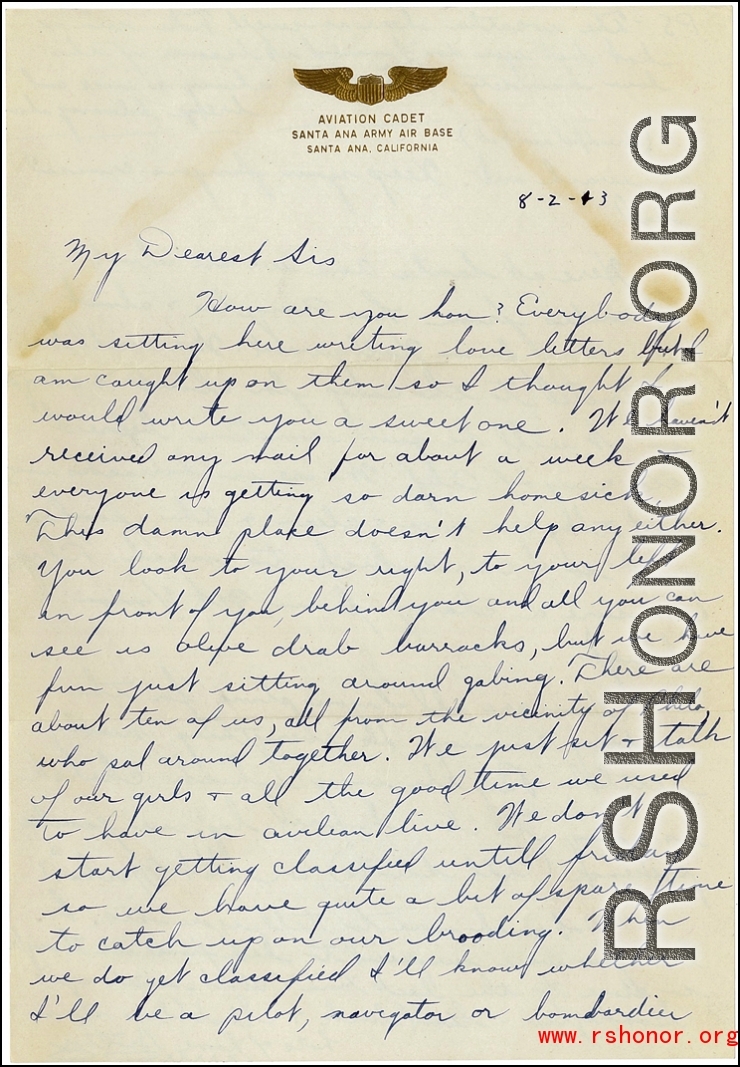 AVIATION CADET
SANTA ANA ARMY AIR BASE
SANTA ANA, CALIFORNIA
8-2-43
My Dearest Sis
How are you hon? Everybody
was sitting here writing love letters but I
am caught up on them so I thought I
would write you a sweet one. We haven't
received any mail for about a week &
everyone is getting so darn homesick.
This damn place doesn't help any either.
You look to your right, to your left
in front of you, behind you and all you can
see is olive drab barracks, but we have
fun just sitting around gabing. There are
about ten of us, all from the vicinity of Phila,
who pal around together. We just sit & talk
of our girls & all the good time we used
to have in civilean live. We don't
start getting classified untill friday
so we have quite a bit of spare time
to catch up on our brooding. When
we do get classified I'll know whether
I'll be a pilot, navigator or bombardier
RSHONOR.ORG
www.rshonor.org